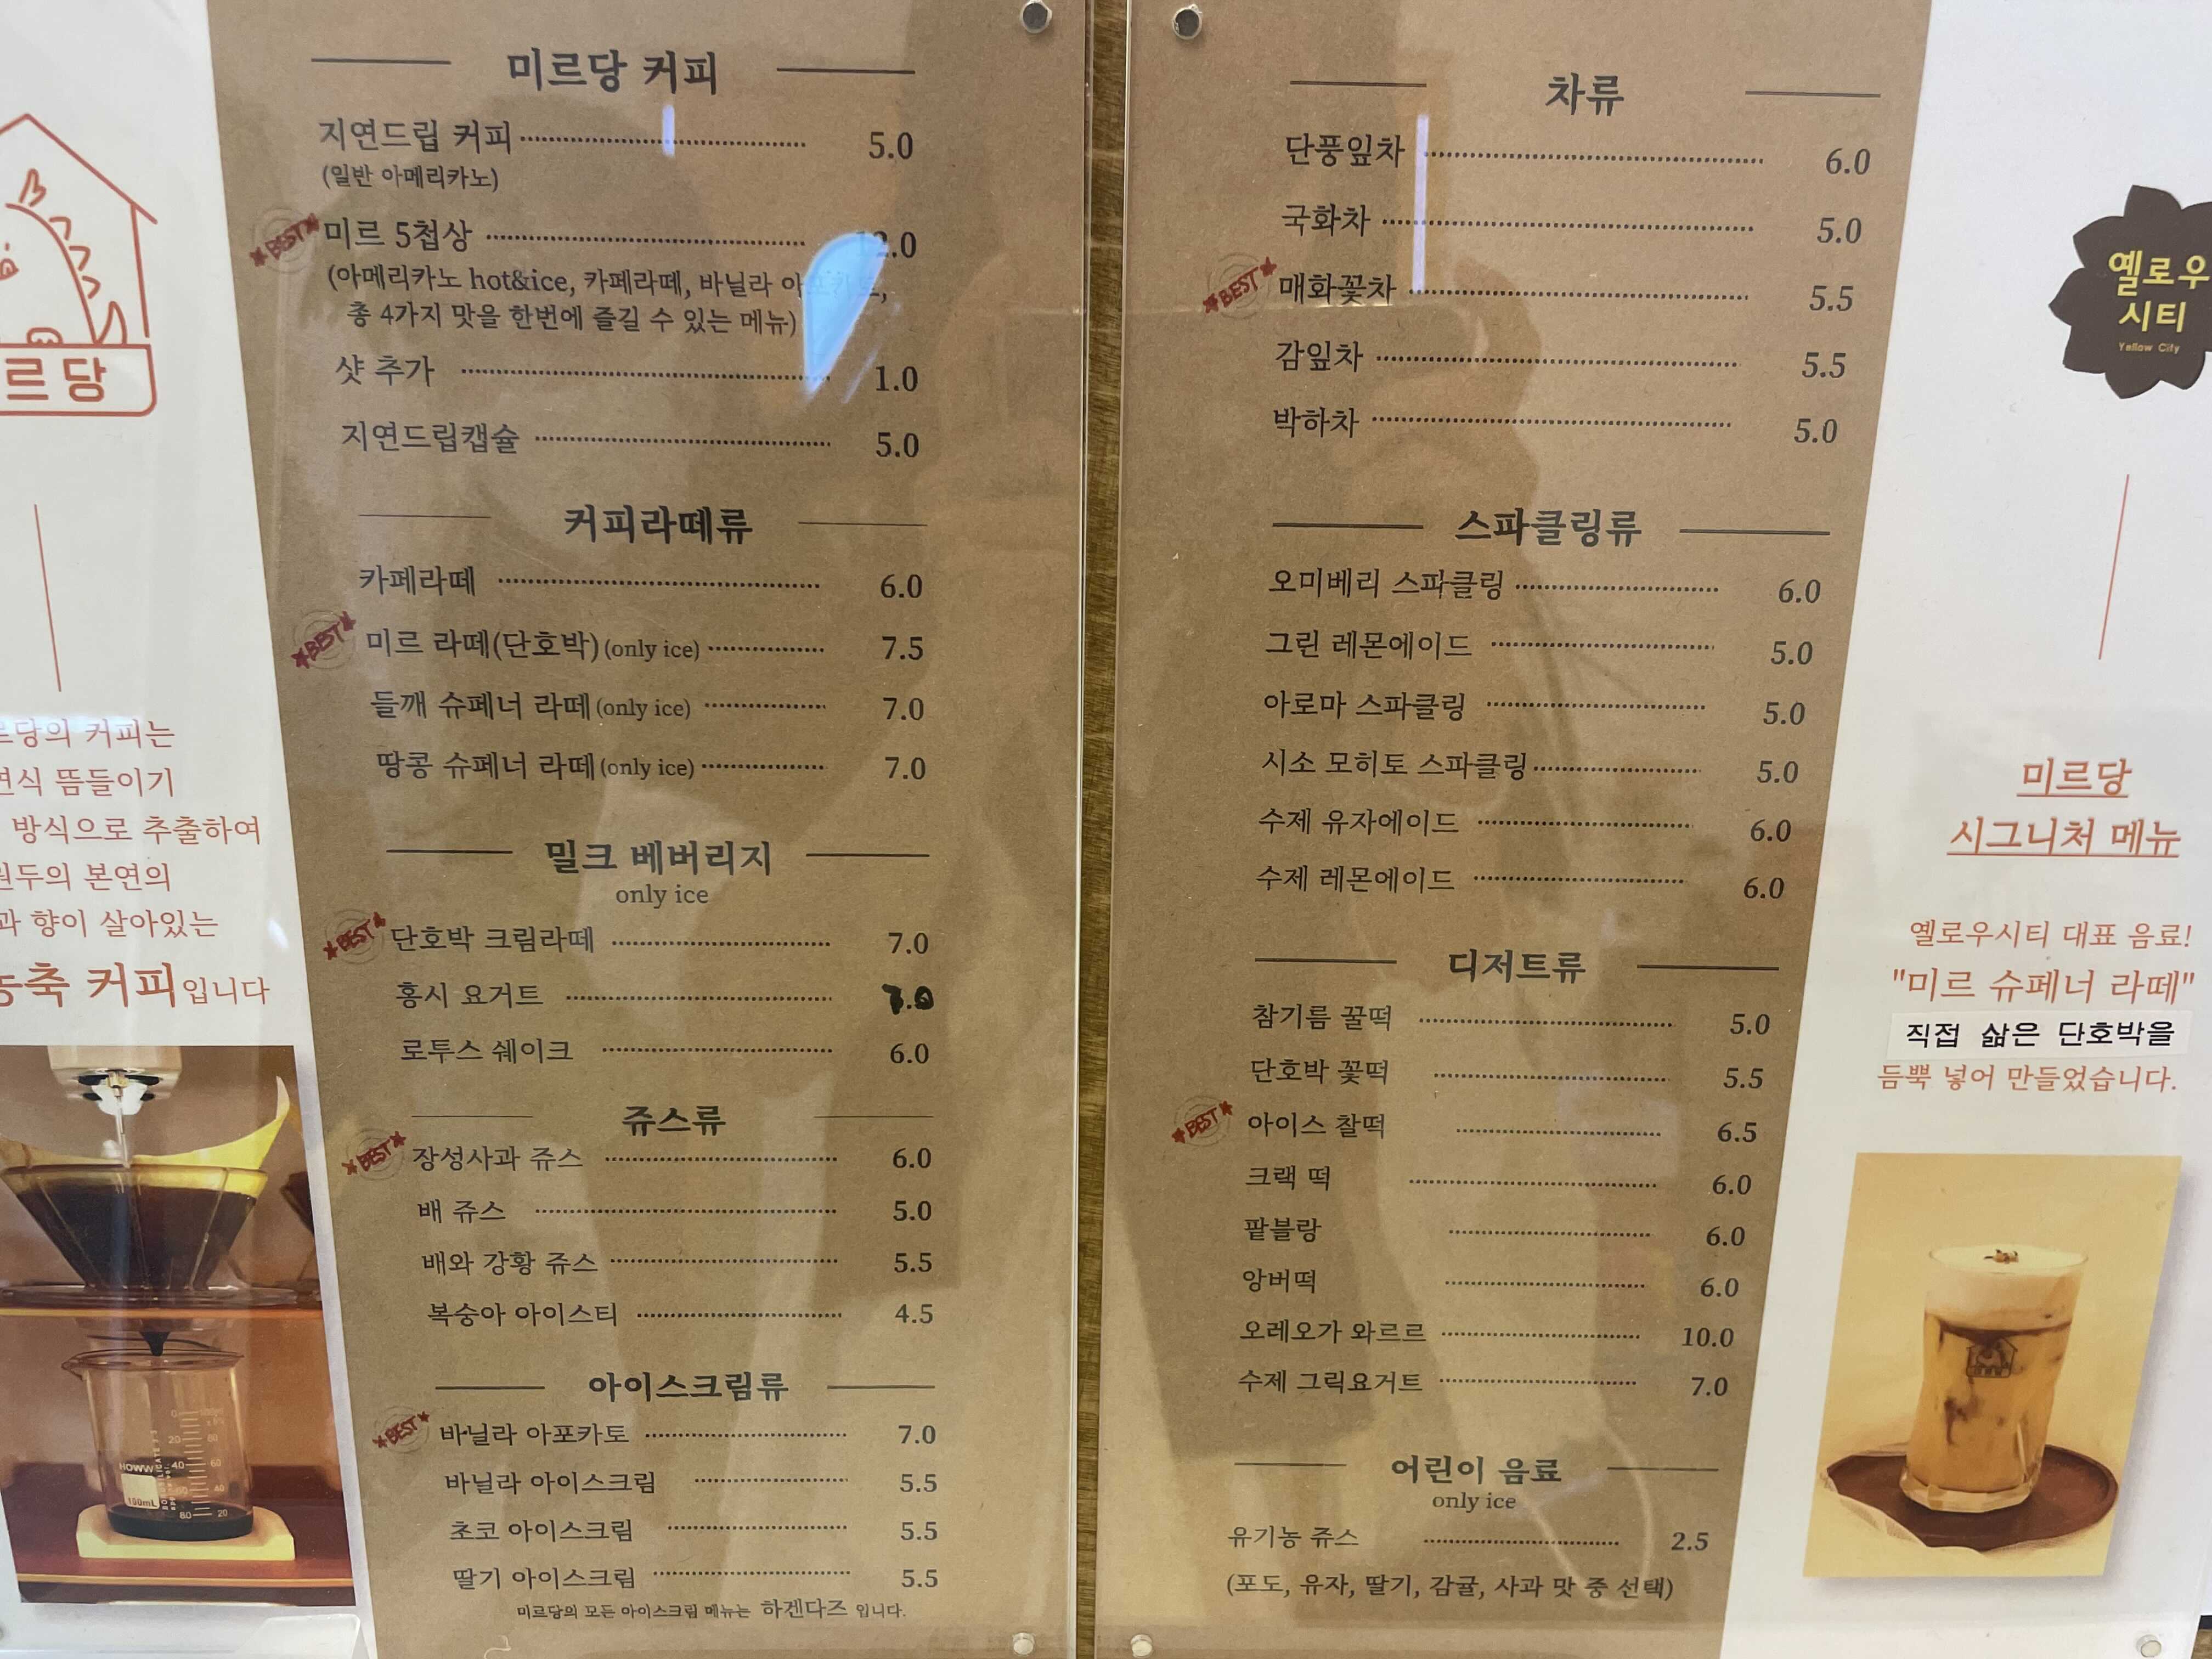 르당
르당의 커피는
연식 뜸들이기
방식으로 추출하여
원두의 본연의
과 향이 살아있는
농축 커피입니다
HOWW
100mL
미르당 커피
지연드립 커피 5.0
(일반 아메리카노)
BEST 미르 5첩상 12.0
(아메리카노 hot&ice, 카페라떼, 바닐라 아포카토,
총 4가지 맛을 한번에 즐길 수 있는 메뉴)
샷 추가 1.0
지연드립캡슐 5.0
커피라떼류
카페라떼 6.0
BEST 미르 라떼(단호박)(only ice) 7.5
들깨 슈페너 라떼(only ice) 7.0
땅콩 슈페너 라떼(only ice) 7.0
밀크 베버리지
only ice
BEST 단호박 크림라떼 7.0
홍시 요거트 7.0
로투스 쉐이크 6.0
쥬스류
BEST 장성사과 쥬스 6.0
배 쥬스 5.0
배와 강황 쥬스 5.5
복숭아 아이스티 4.5
아이스크림류
BEST 바닐라 아포카토 7.0
바닐라 아이스크림 5.5
초코 아이스크림 5.5
딸기 아이스크림 5.5
미르당의 모든 아이스크림 메뉴는 하겐다즈 입니다.
차류
단풍잎차 6.0
국화차 5.0
BEST 매화꽃차 5.5
감잎차 5.5
박하차 5.0
스파클링류
오미베리 스파클링 6.0
그린 레몬에이드 5.0
아로마 스파클링 5.0
시소 모히토 스파클링 5.0
수제 유자에이드 6.0
수제 레몬에이드 6.0
디저트류
참기름 꿀떡 5.0
단호박 꽃떡 5.5
BEST 아이스 찰떡 6.5
크랙 떡 6.0
팥블랑 6.0
앙버떡 6.0
오레오가 와르르 10.0
수제 그릭요거트 7.0
어린이 음료
only ice
유기농 쥬스 2.5
(포도, 유자, 딸기, 감귤, 사과 맛 중 선택)
옐로우
시티
Yellow City
미르당
시그니처 메뉴
옐로우시티 대표 음료!
"미르 슈페너 라떼"
직접 삶은 단호박을
듬뿍 넣어 만들었습니다.